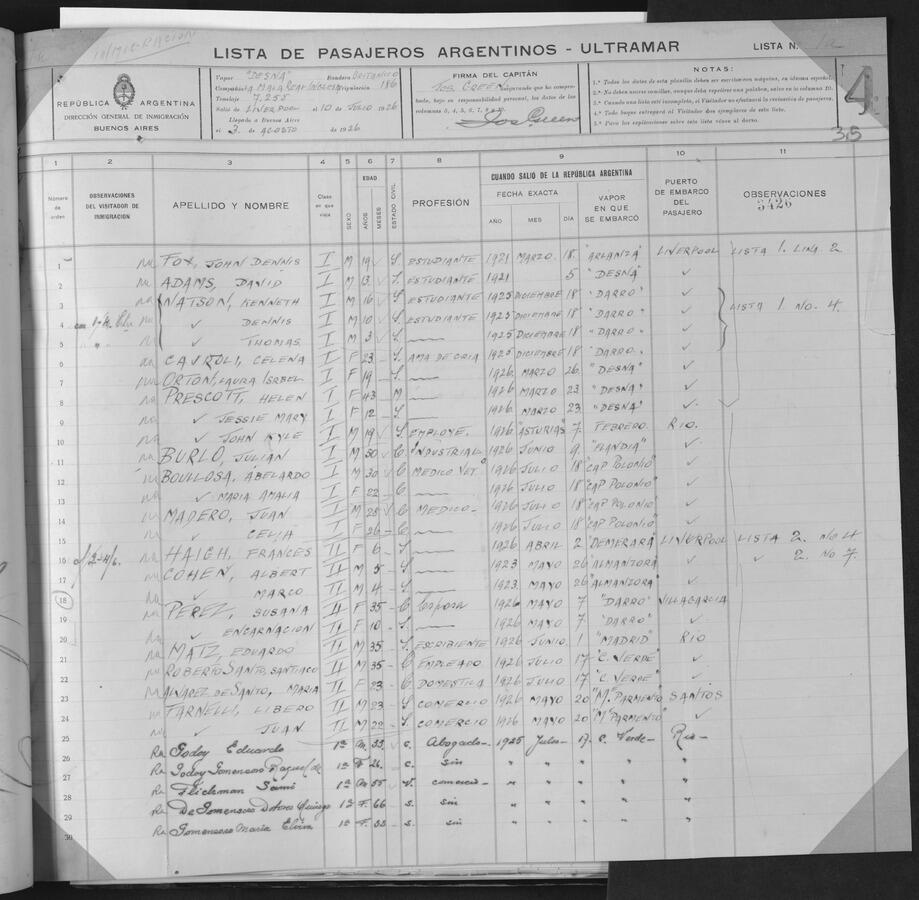 INMIGRACION
LISTA DE PASAJEROS ARGENTINOS - ULTRAMAR
LISTA N.
REPÚBLICA ARGENTINA
DIRECCIÓN GENERAL DE INMIGRACIÓN
BUENOS AIRES
Vapor "DESNA" Bandera BRITANICO
Compañía LA MALA REAL INGLESA Tripulación 186
Tonelaje 7.255
Salido de LIVERPOOL el 10 de JULIO 1926
Llegado a Buenos Aires
el 3 de AGOSTO de 1926
FIRMA DEL CAPITÁN
JOS GREEN asegurando que ha comprobado, bajo su responsabilidad personal, los datos de las columnas 3, 4, 5, 6, 7, 8, 9 y 10.
Jos Green
NOTAS:
1.º Todos los datos de esta planilla deben ser escritos con máquina, en idioma español.
2.º No deben usarse comillas, aunque deba repetirse una palabra, salvo en la columna 10.
3.º Cuando una lista esté incompleta, el Visitador no efectuará la revisación de pasajeros.
4.º Todo buque entregará al Visitador dos ejemplares de esta lista.
5.º Para las explicaciones sobre esta lista véase al dorso.
4
35
1 2 3 4 5 6 7 8 9 10 11
Número de orden
OBSERVACIONES DEL VISITADOR DE INMIGRACIÓN
APELLIDO Y NOMBRE
Clase en que viaja
SEXO
EDAD
AÑOS MESES
ESTADO CIVIL
PROFESIÓN
CUANDO SALIÓ DE LA REPÚBLICA ARGENTINA
FECHA EXACTA
AÑO MES DÍA
VAPOR EN QUE SE EMBARCÓ
PUERTO DE EMBARCO DEL PASAJERO
OBSERVACIONES
3426
1 FOX, JOHN DENNIS I M 19 S. ESTUDIANTE 1921 MARZO 18. "ARLANZA" LIVERPOOL LISTA 1. LINA. 2
2 ADAMS, DAVID I M 13 S. ESTUDIANTE 1921 5 "DESNA" ✓
3 WATSON, KENNETH I M 16 S. ESTUDIANTE 1925 DICIEMBRE 18 "DARRO" ✓ LISTA 1 NO. 4.
4 ✓ DENNIS I M 10 S. ESTUDIANTE 1925 DICIEMBRE 18 "DARRO" ✓
5 ✓ THOMAS I M 3 S. — 1925 DICIEMBRE 18 "DARRO" ✓
6 CELENA I F 23 S. AMA DE CRIA 1925 DICIEMBRE 18 "DARRO" ✓
7 ORTON, LAURA ISABEL I F 19 S. — 1926 MARZO 26 "DESNA" ✓
8 PRESCOTT, HELEN I F 43 M — 1926 MARZO 23 "DESNA" ✓
9 ✓ JESSIE MARY I F 12 S. — 1926 MARZO 23 "DESNA" ✓
10 ✓ JOHN KYLE I M 19 S. EMPLOYE. 1926 "ASTURIAS" 7. FEBRERO RIO.
11 BURLO, JULIAN I M 50 C INDUSTRIAL 1926 JUNIO 9. "FLANDIA" ✓
12 BOULLOSA, ABELARDO I M 30 C MEDICO VETº 1926 JULIO 18 "CAP POLONIO" ✓
13 ✓ MARIA AMALIA I F 22 C — 1926 JULIO 18 "CAP POLONIO" ✓
14 MADERO, JUAN I M 28 C MEDICO 1926 JULIO 18 "CAP POLONIO" ✓
15 ✓ CELIA I F 26 C — 1926 JULIO 18 "CAP POLONIO" ✓
16 HAIGH, FRANCES II F 6 S. — 1926 ABRIL 2 "DEMERARA" LIVERPOOL LISTA 2. No 4
17 COHEN, ALBERT II M 5 S. — 1923 MAYO 26 "ALMANZORA" ✓ ✓ 2. No 7.
18 ✓ MARCO II M 4 S. — 1923 MAYO 26 "ALMANZORA" ✓
19 PEREZ, SUSANA II F 35 C ESPOSA 1926 MAYO 7 "DARRO" VILLAGARCIA
20 ✓ ENCARNACION II F 10 S. — 1926 MAYO 7 "DARRO" ✓
21 MATZ, EDUARDO II M 35 S. ESCRIBIENTE 1926 JUNIO 1 "MADRID" RIO
22 ROBERTO SANTO, SANTIAGO II M 35 C EMPLEADO 1926 JULIO 17 "C. VERDE" ✓
23 ALVAREZ DE SANTO, MARIA II F 23 C DOMESTICA 1926 JULIO 17 "C. VERDE" ✓
24 TARNELLI, LIBERO II M 23 S COMERCIO 1926 MAYO 20 SANTOS
25 ✓ JUAN II M 22 S COMERCIO 1926 MAYO 20 ✓
26 Ra Godoy Eduardo 1ª M 33 c. Abogado 1925 Julio 17 C. Verde Rio
27 Ra Godoy Gomensoro Raquel de 1ª F. 26 c. sin " " " " "
28 Ra Flichman Sami 1ª M 55 V. comercio " " " " "
29 Ra De Gomensoro Dolores 1ª F. 66 s. sin " " " " "
30 Ra Gomensoro Maria Elvira 1ª F. 33 s. sin " " " " "